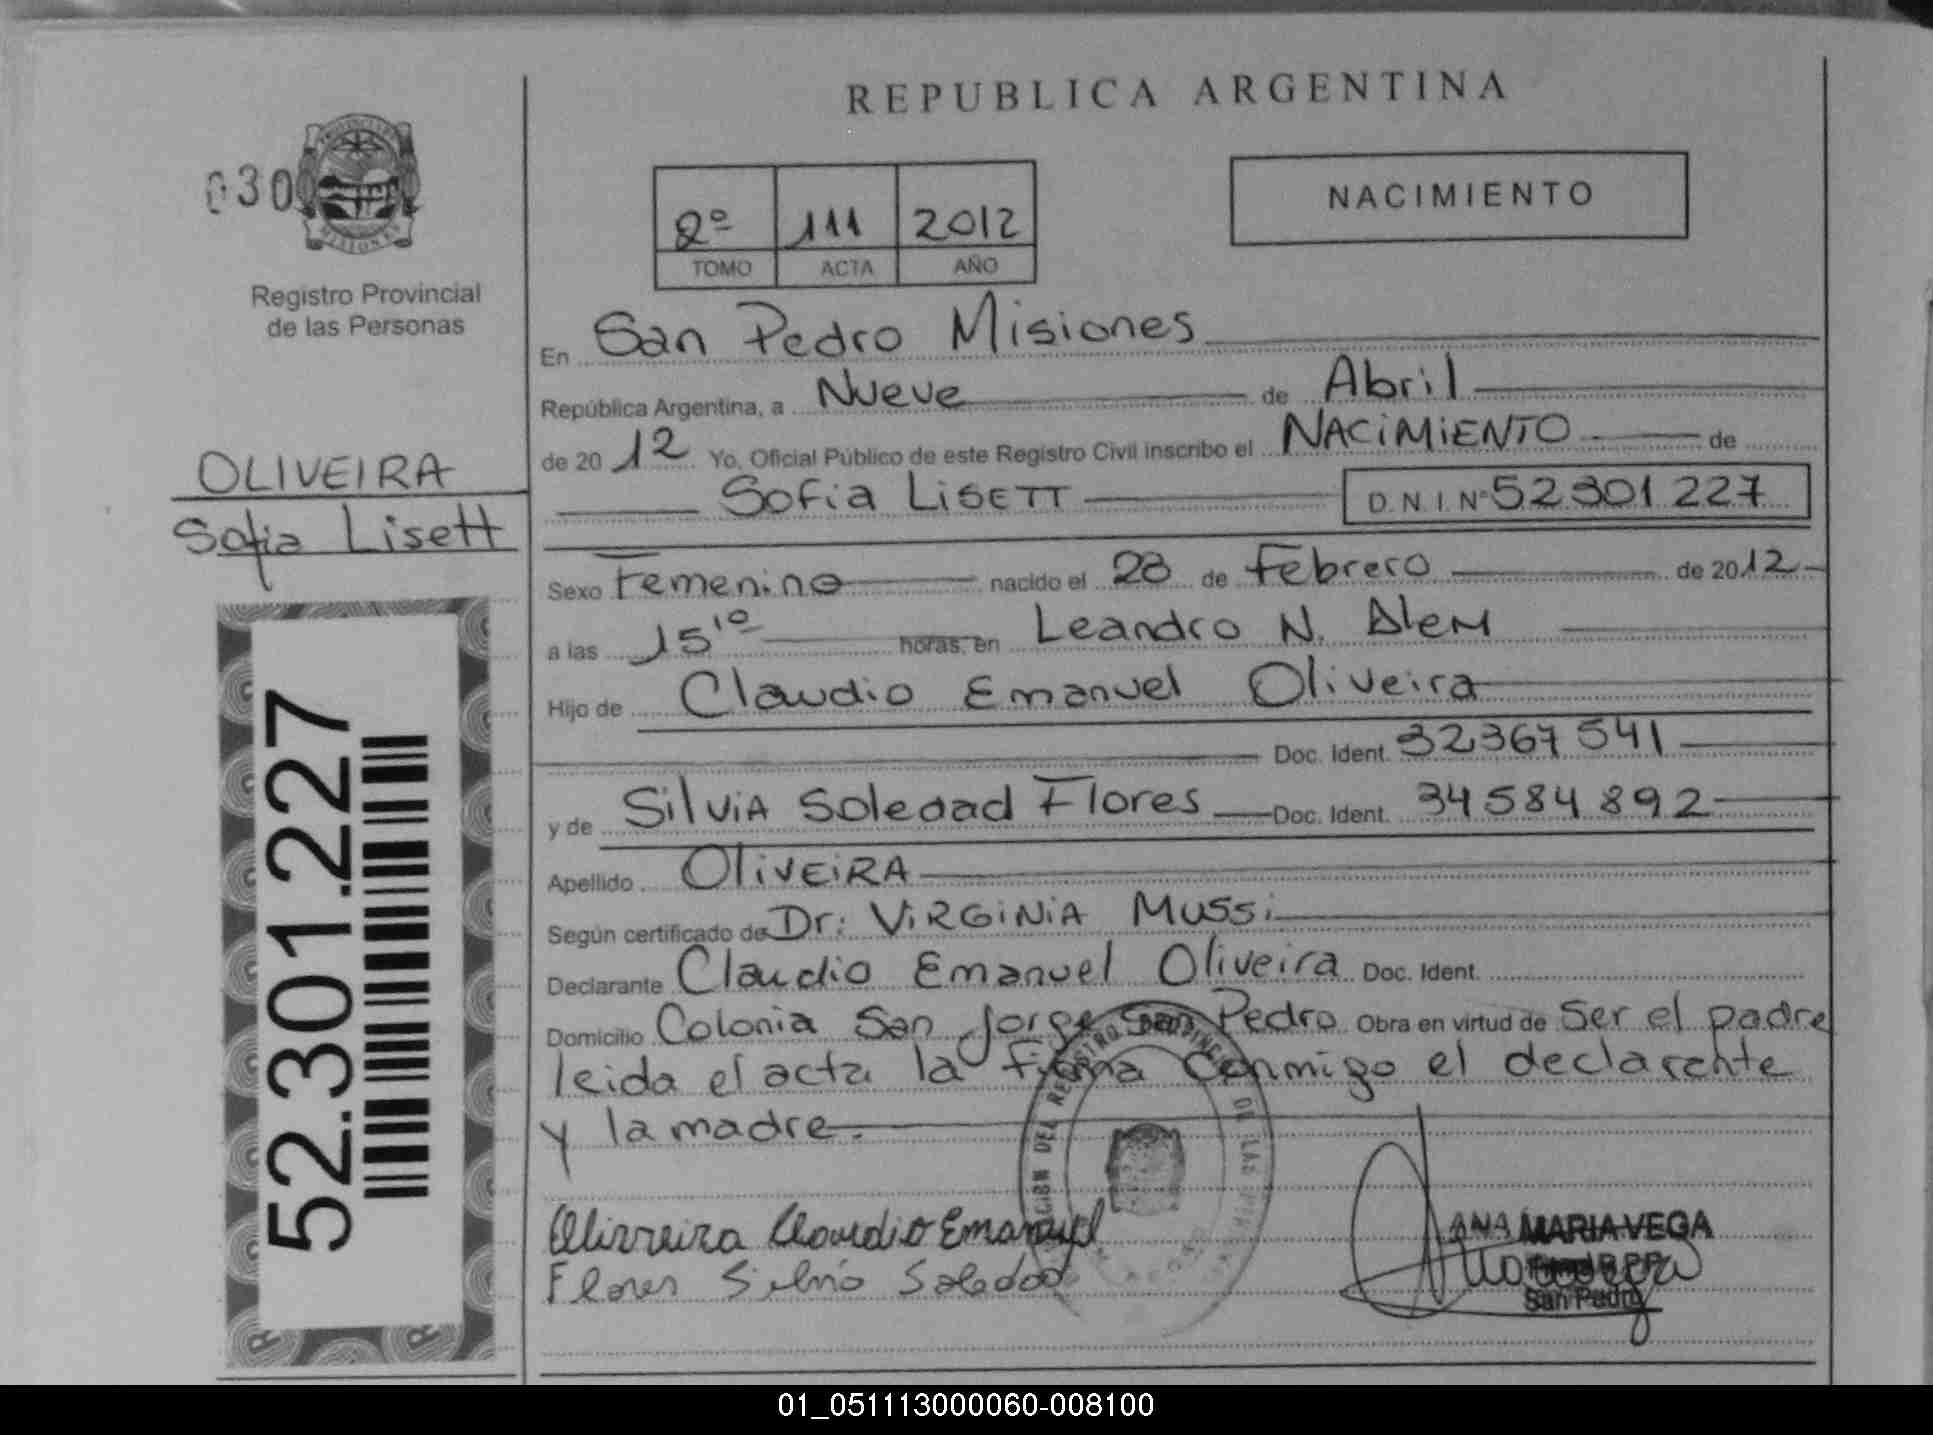 REPUBLICA ARGENTINA
030
PROVINCIA
MISIONES
Registro Provincial
de las Personas
2º 111 2012
TOMO ACTA AÑO
NACIMIENTO
OLIVEIRA
Sofia Lisett
52.301.227
En San Pedro Misiones
República Argentina, a Nueve de Abril
de 2012 Yo, Oficial Público de este Registro Civil inscribo el NACIMIENTO de
Sofia Lisett D.N.I. Nº 52301227
Sexo Femenino nacido el 28 de Febrero de 2012
a las 15 10 horas, en Leandro N. Alem
Hijo de Claudio Emanuel Oliveira
Doc. Ident. 32367541
y de Silvia Soledad Flores Doc. Ident. 34584892
Apellido OLIVEIRA
Según certificado de Dr: VIRGINIA MUSSI
Declarante Claudio Emanuel Oliveira Doc. Ident.
Domicilio Colonia San Jorge San Pedro Obra en virtud de Ser el padre
leida el acta la firma conmigo el declarante
y la madre.
Oliveira Claudio Emanuel
Flores Silvia Soledad
ANA MARIA VEGA
San Pedro
01_051113000060-008100